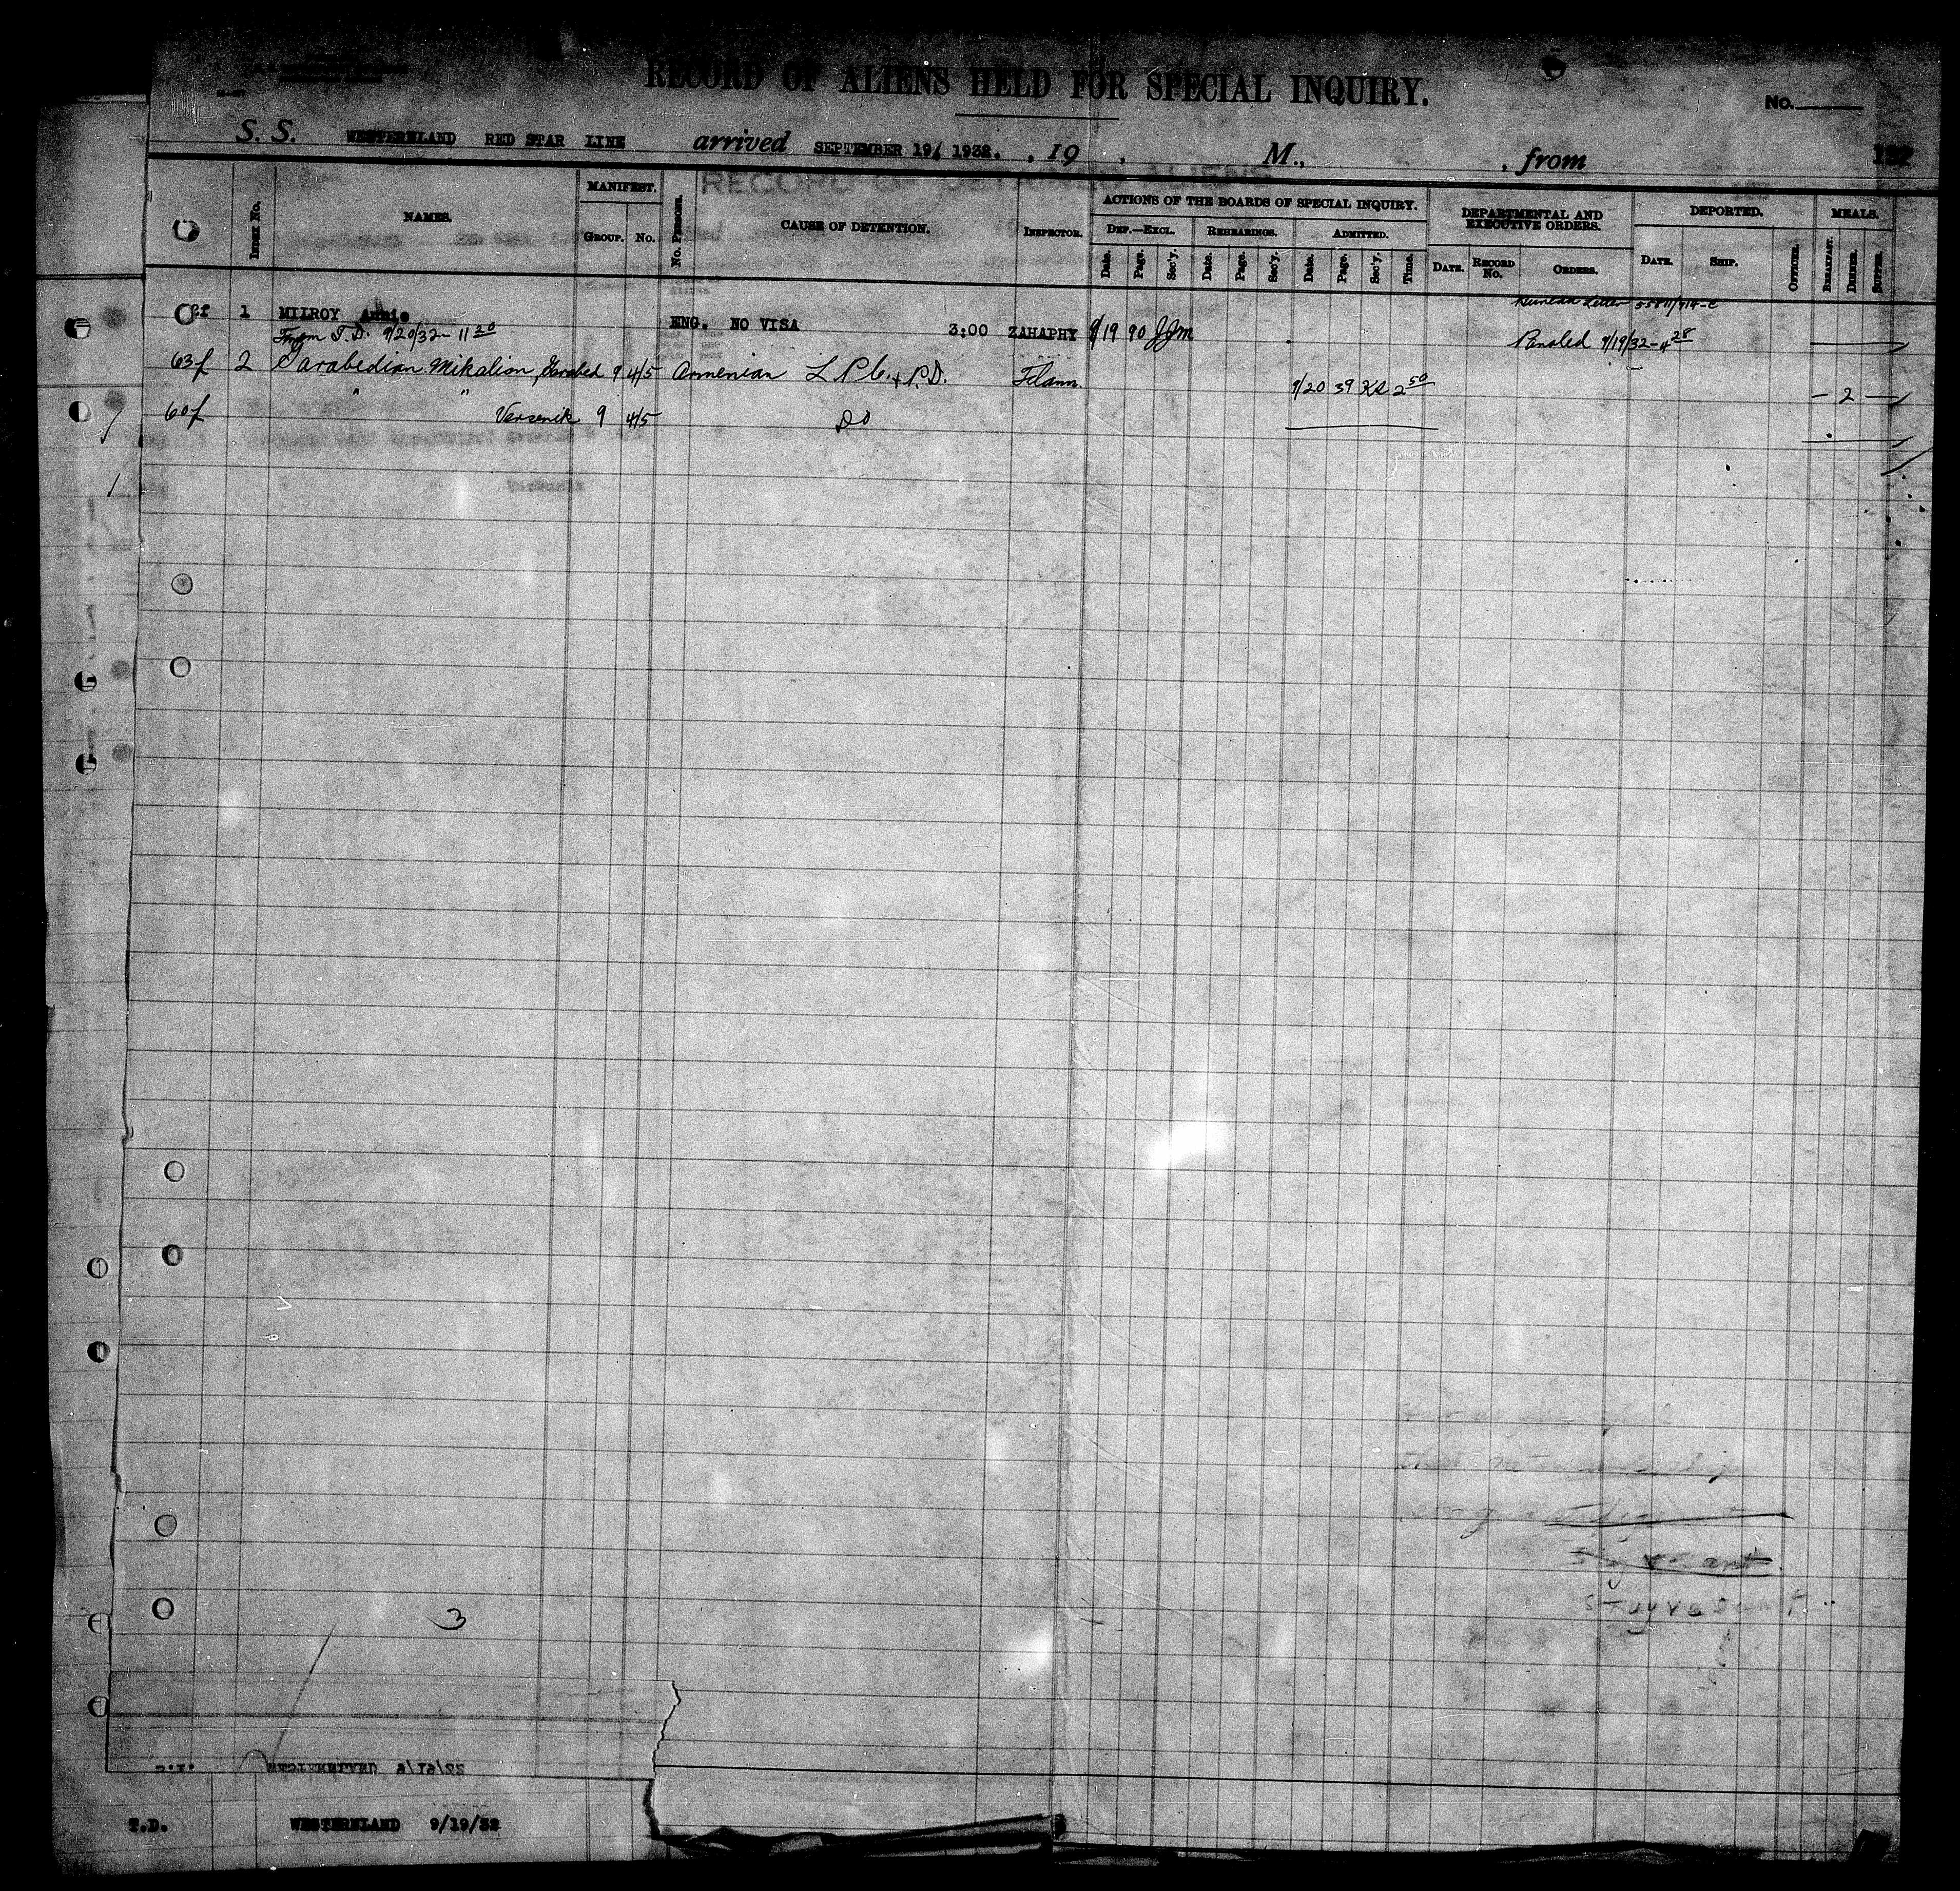 RECORD OF ALIENS HELD FOR SPECIAL INQUIRY.
No.
S. S. WESTERNLAND RED STAR LINE arrived SEPTEMBER 19, 1932. , 19 , M., , from
INDEX No. NAMES. MANIFEST. GROUP. No. No. PERSONS. CAUSE OF DETENTION. INSPECTOR. ACTIONS OF THE BOARDS OF SPECIAL INQUIRY. DEF.—EXCL. Date. Page. Sec'y. REHEARINGS. Date. Page. Sec'y. ADMITTED. Date. Page. Sec'y. Time. DEPARTMENTAL AND EXECUTIVE ORDERS. DATE. RECORD No. ORDERS. DEPORTED. DATE. SHIP. OFFICER. MEALS. BREAKFAST. DINNER. SUPPER.
1 MILROY Annie ENG. NO VISA 3:00 ZAHAPHY 9/19 90 JJM Letter
From T.D. 9/20/32 - 11 20 Paroled 9/19/32 - 4 28
63f 2 Garabedian Mikalion, Garabed 9 4/5 Armenian L P C + P.D. 9/20 39 2 50 - 2 -
60f " " Versenik 9 4/5 DO
Stuyvesant
3
WESTERNLAND 9/19/32
T.D. WESTERNLAND 9/19/32